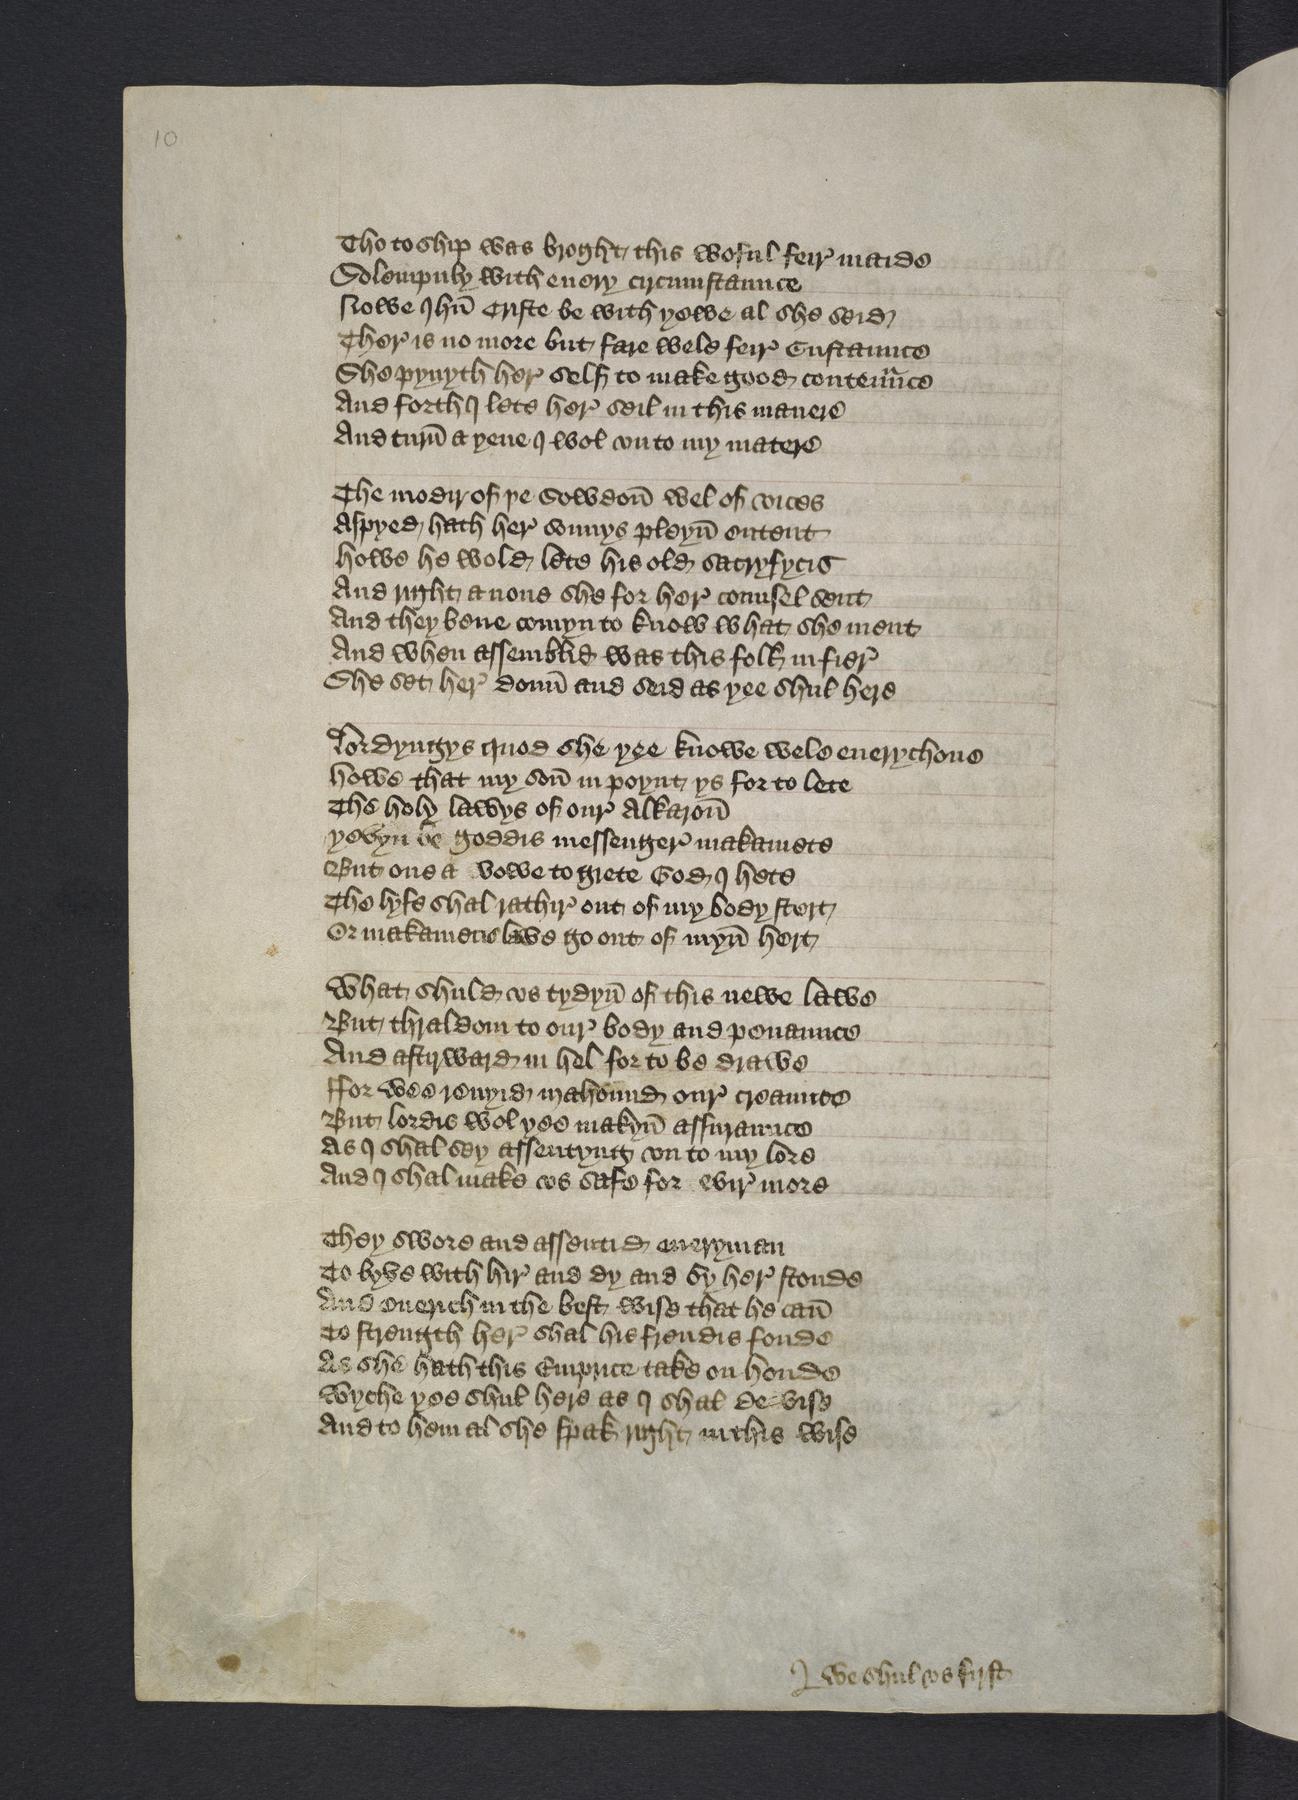 10
Tho to ship was broght this woful feir maide
Solempnly with euery circumstaunce
Nowe Ihū Criste be with yowe al she seid
Ther is no more but fare wele feir Custaunce
She pynyth her self to make good contenaūce
And forth I lete her seil in this manere
And turn̄ a yene I wol vn to my matere
The modir of þe Sowdon̄ wel of vices
Aspyed hath her sonnys pleyn̄ entent
howe he wold lete his old sacryfycis
And right a none she for her counsel sent
And they bene comyn to know what she ment
And when assemblid was this folk in fier
She set her doun̄ and seid as yee shul here
Lordyngys quod she yee knowe wele euerychone
howe that my son̄ in poynt ys for to lete
The holy lawys of our Alkaron̄
yovyn be goddis messenger makamete
But one a vowe to grete God I hete
The lyfe shal rathir out of my body stert
Or makametis lawe go out of myn̄ hert
What shuld vs tydyn̄ of this newe lawe
But thraldom to our body and penaunce
And aftirward in hel for to be drawe
ffor wee renyid mahound our creaunce
But lordis wol yee makyn̄ assuraunce
As I shal sey assentyng vn to my lore
And I shal make vs safe for evir more
They swore and assentid eueryman
To lyve with hir and dy and by her stonde
And euerich in the best wise that he can̄
To strength her shal his frendis fonde
As she hath this Emprice take on honde
Wyche yee shul here as I shal devise
And to hem al she spak right in this wise
we shul vs first